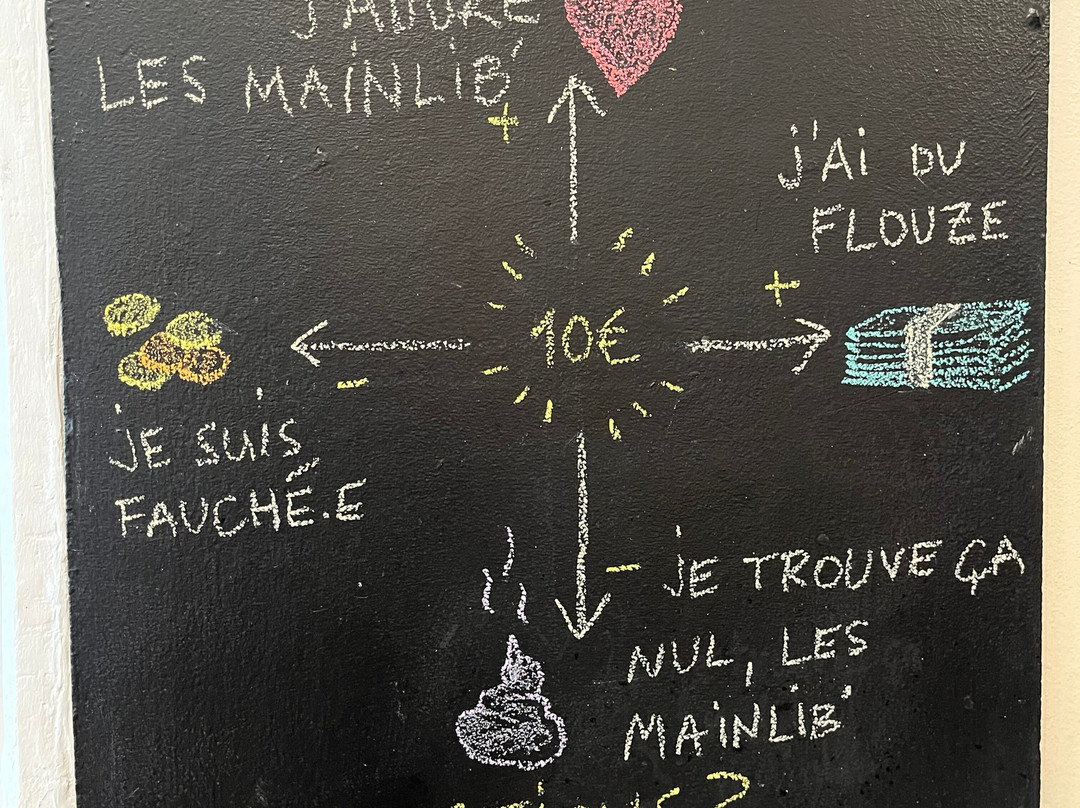 J'ADORE
LES MAINLIB'
+
J'AI DU
FLOUZE
+
10€
-
JE SUIS
FAUCHÉ.E
- JE TROUVE ÇA
NUL, LES
MAINLIB'
?